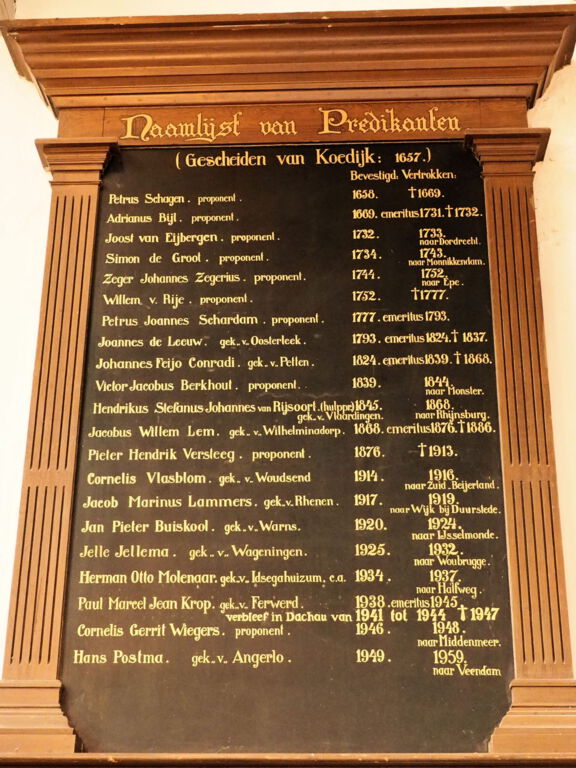 Naamlijst van Predikanten
(Gescheiden van Koedijk: 1657.)
Bevestigd: Vertrokken:
Petrus Schagen. proponent. 1658. †1669.
Adrianus Bijl. proponent. 1669. emeritus 1731. † 1732.
Joost van Eijbergen. proponent. 1732. 1733.
naar Dordrecht.
Simon de Groot. proponent. 1734. 1743.
naar Monnikkendam.
Zeger Johannes Zegerius. proponent. 1744. 1752.
naar Epe.
Willem v. Rije. proponent. 1752. †1777.
Petrus Joannes Schardam. proponent. 1777. emeritus 1793.
Joannes de Leeuw. gek. v. Oosterleek. 1793. emeritus 1824. † 1837.
Johannes Feijo Conradi. gek. v. Petten. 1824. emeritus 1839. † 1868.
Victor Jacobus Berkhout. proponent. 1839. 1844.
naar Monster.
Hendrikus Stefanus Johannes van Rijsoort. (hulppr.) 1845. 1868.
gek. v. Vloordingen. naar Rhijnsburg.
Jacobus Willem Lem. gek. v. Wilhelminadorp. 1868. emeritus 1876. † 1886.
Pieter Hendrik Versteeg. proponent. 1876. † 1913.
Cornelis Vlasblom. gek. v. Woudsend 1914. 1916.
naar Zuid Beijerland.
Jacob Marinus Lammers. gek. v. Rhenen. 1917. 1919.
naar Wijk bij Duurstede.
Jan Pieter Buiskool. gek. v. Warns. 1920. 1924.
naar IJsselmonde.
Jelle Jellema. gek. v. Wageningen. 1925. 1932.
naar Woubrugge.
Herman Otto Molenaar. gek. v. Idsegahuizum, c.a. 1934. 1937.
naar Halfweg.
Paul Marcel Jean Krop. gek. v. Ferwerd. 1938. emeritus 1945.
verbleef in Dachau van 1941 tot 1944 † 1947
Cornelis Gerrit Wiegers. proponent. 1946. 1948.
naar Middenmeer.
Hans Postma. gek. v. Angerlo. 1949. 1959.
naar Veendam